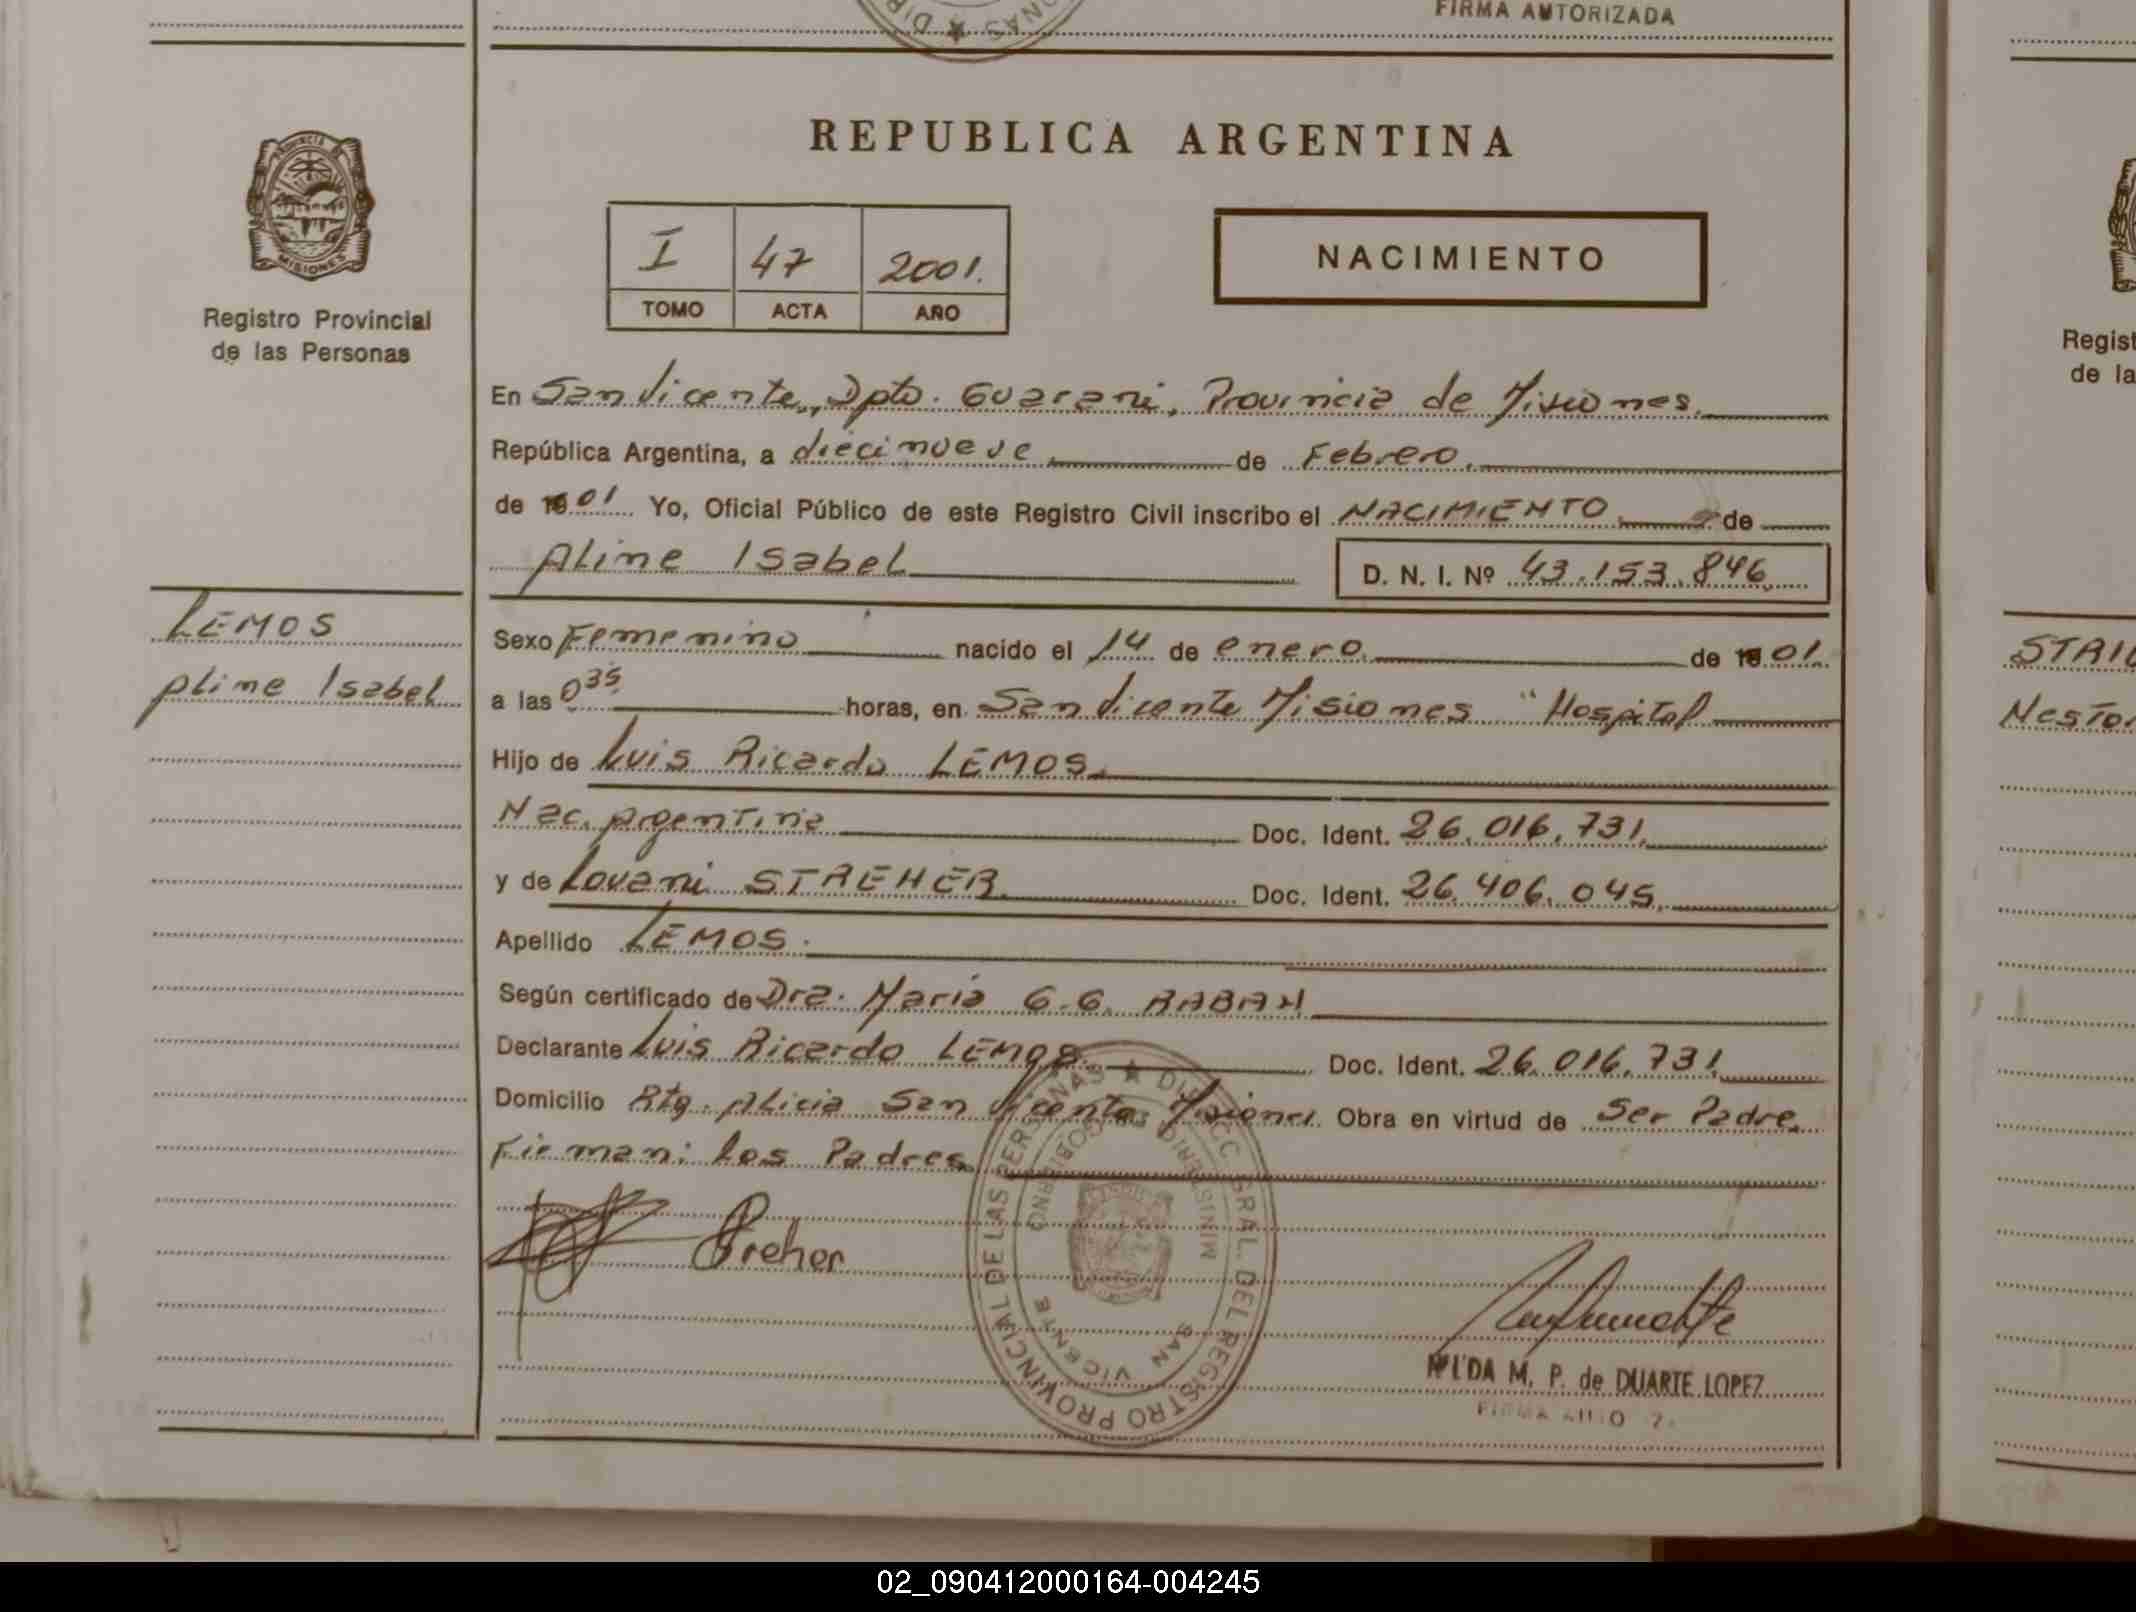 FIRMA AUTORIZADA
PROVINCIA DE
MISIONES
Registro Provincial
de las Personas
REPUBLICA ARGENTINA
I 47 2001.
TOMO ACTA AÑO
NACIMIENTO
En San Vicente, Dpto. Guarani, Provincia de Misiones.
República Argentina, a diecinueve de Febrero.
de 01 Yo, Oficial Público de este Registro Civil inscribo el NACIMIENTO de
Aline Isabel
D. N. I. Nº 43.153.846.
LEMOS
Aline Isabel
Sexo Femenino nacido el 14 de enero. de 01.
a las 0 35 horas, en San Vicente Misiones "Hospital
Hijo de Luis Ricardo LEMOS.
Nac. Argentina Doc. Ident. 26.016.731.
y de Lovani STREHER. Doc. Ident. 26.406.045.
Apellido LEMOS.
Según certificado de Dra. Maria G.G. RABAH
Declarante Luis Ricardo LEMOS. Doc. Ident. 26.016.731.
Domicilio Rtg. Alicia San Vicente Misiones. Obra en virtud de Ser Padre.
Firman: los Padres.
Streher
DIRECC. GRAL. DEL REGISTRO PROVINCIAL DE LAS PERSONAS
MINISTERIO DE GOBIERNO
SAN VICENTE
M. P. de DUARTE LOPEZ
Regist
de la
Nestor
02_090412000164-004245